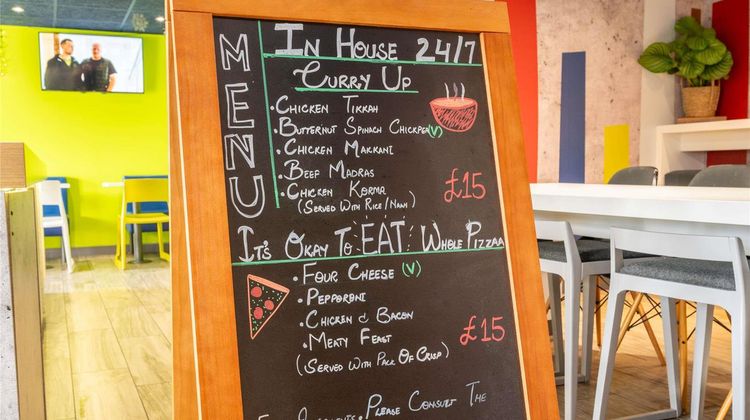 MENU
IN HOUSE 24/7
CURRY UP
• CHICKEN TIKKAH
• BUTTERNUT SPINACH CHICKPEA (V)
• CHICKEN MAKKANI
• BEEF MADRAS
• CHICKEN KORMA
(SERVED WITH RICE/NAAN)
£15
IT'S OKAY TO EAT WHOLE PIZZA
• FOUR CHEESE (V)
• PEPPORONI
• CHICKEN & BACON
• MEATY FEAST
(SERVED WITH PACK OF CRISP)
£15
PLEASE CONSULT THE